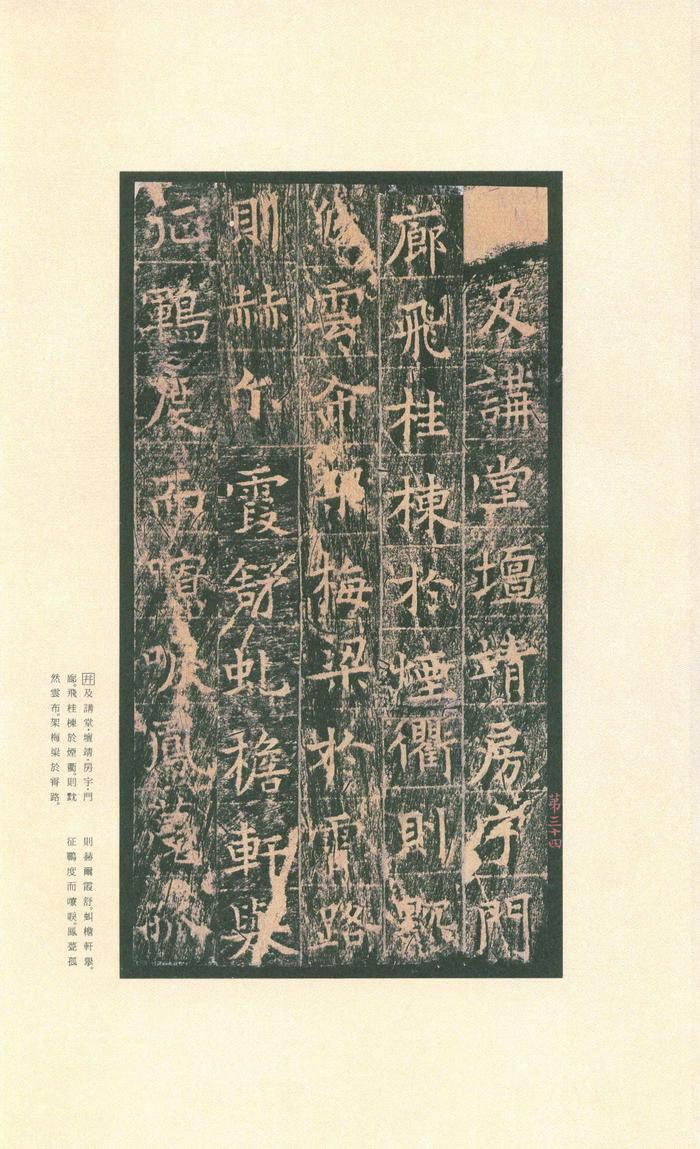 及講堂壇靖房宇門
廊飛桂棟於煙衢則黕
然雲布架梅梁於霄路
則赫尒霞舒虬檐軒舉
征鶤度而嘹唳鳳甍孤
第三十四
幷及講堂・壇靖・房宇・門
廊。飛桂棟於煙衢。則黕
然雲布。架梅梁於霄路。
則赫爾霞舒。虬檐軒舉。
征鶤度而嘹唳。鳳甍孤